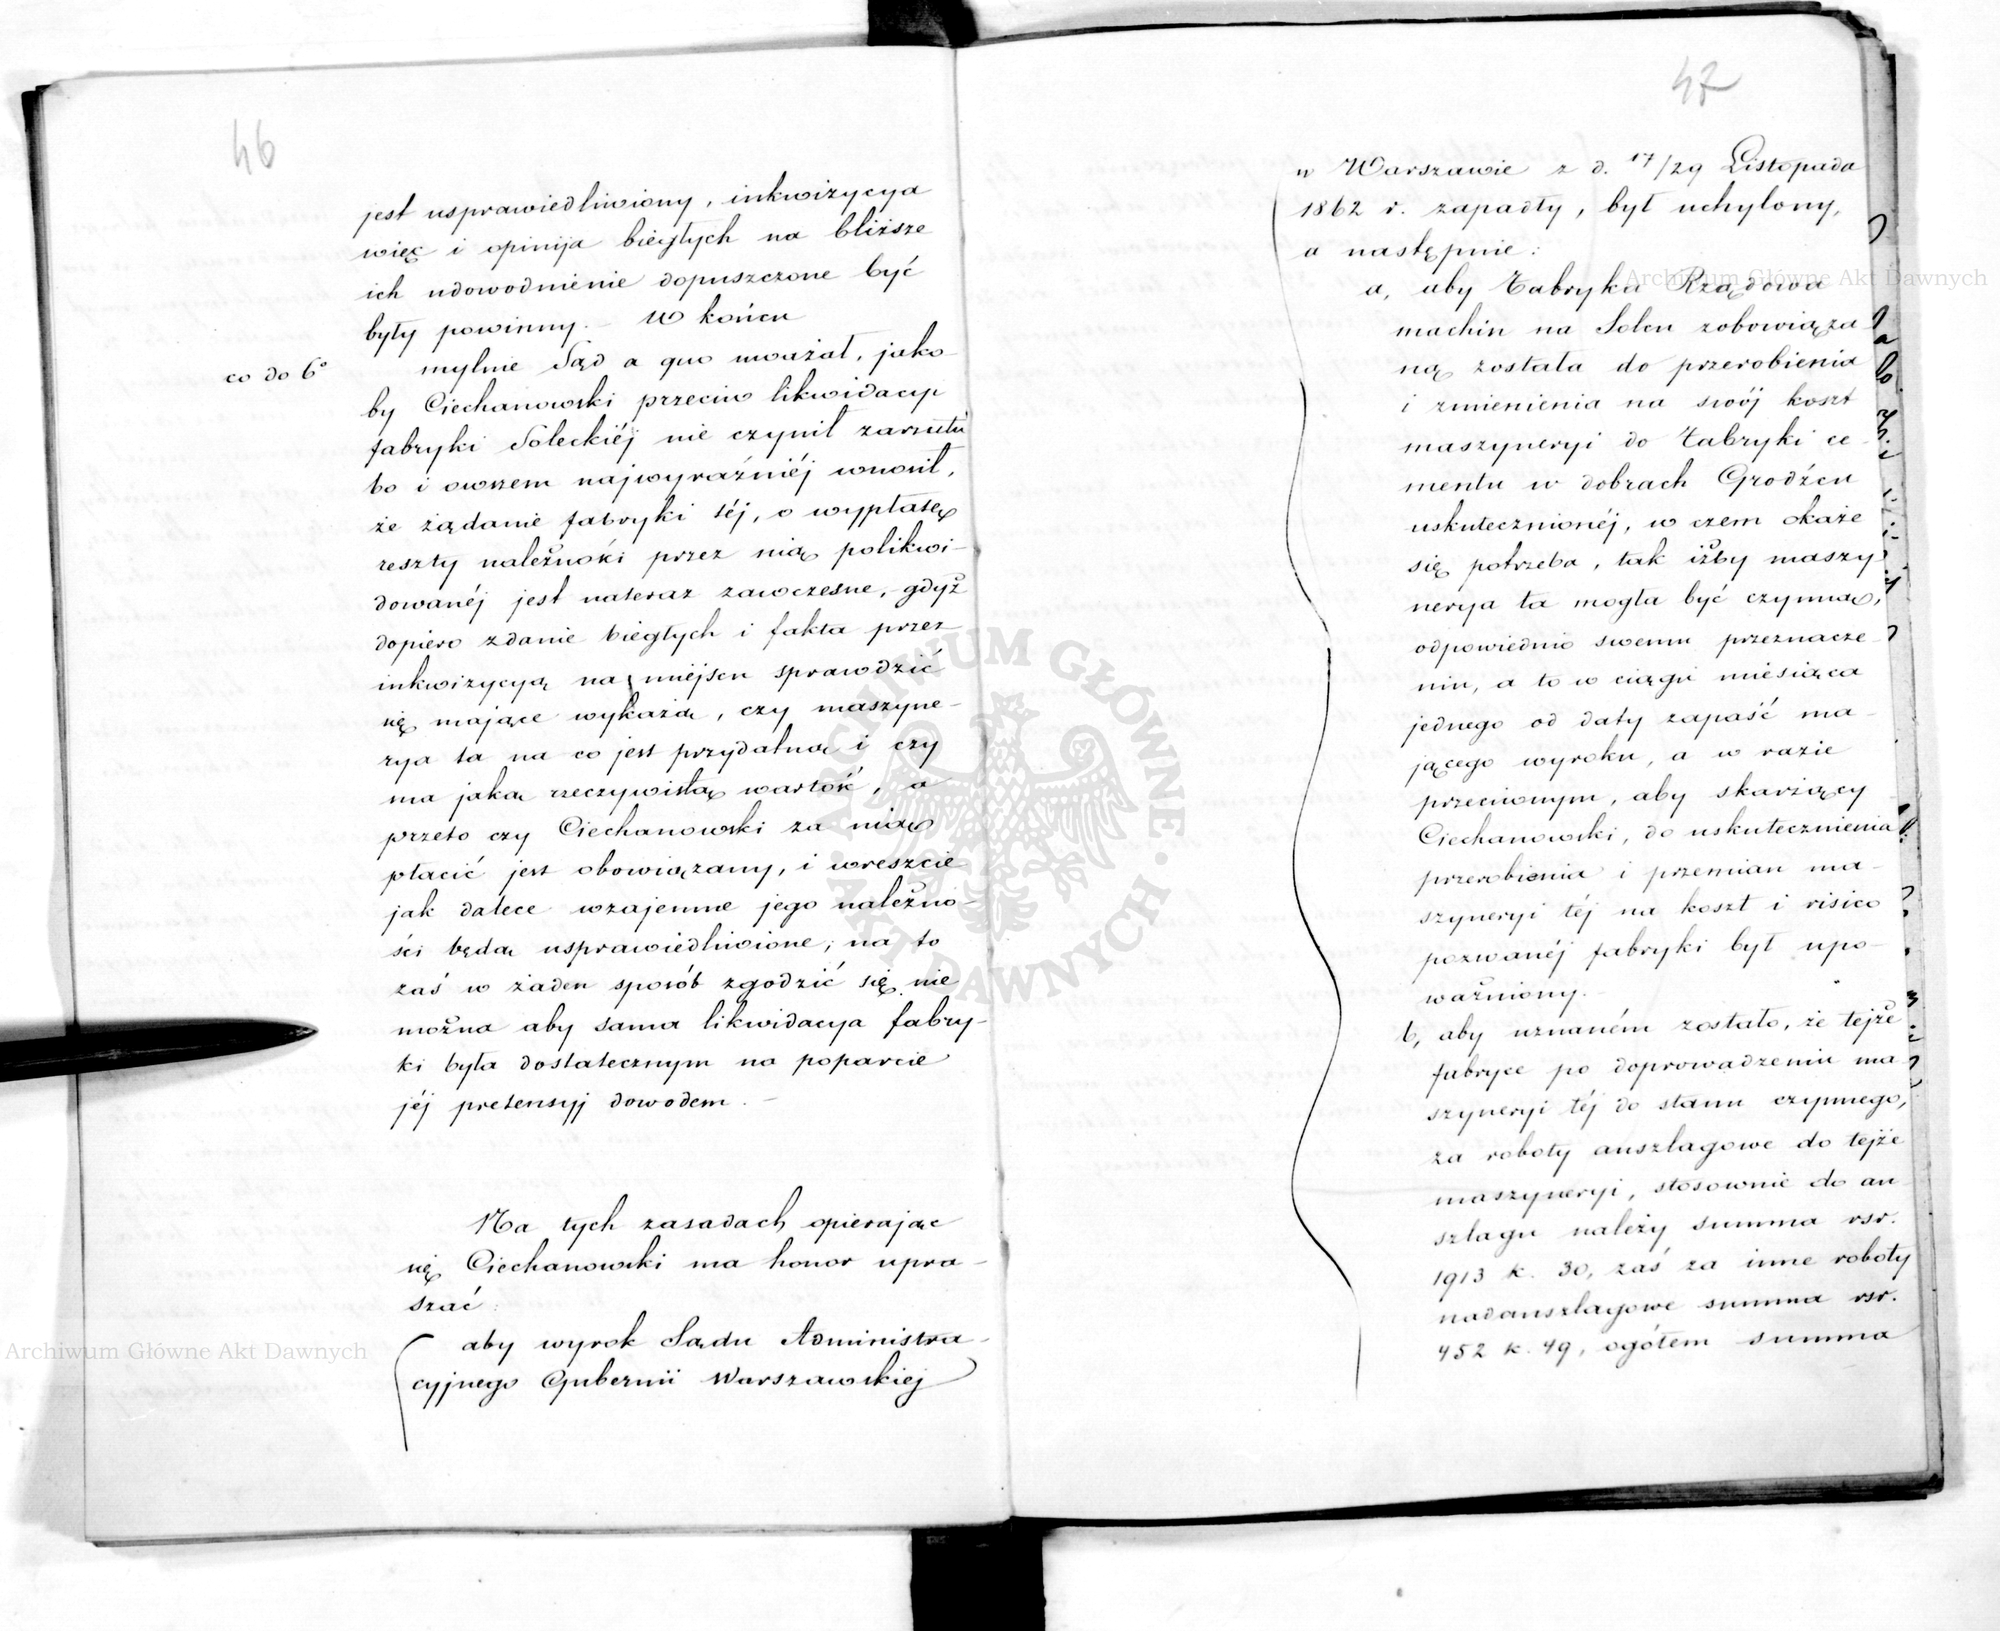 46
jest usprawiedliwiony, inkwizycya
więc i opinija biegłych na bliższe
ich udowodnienie dopuszczone być
były powinny. – W końcu
co do 6°
mylnie Sąd a quo uważał, jako-
by Ciechanowski przeciw likwidacyi
fabryki Soleckiéj nie czynił zarzutu
bo i owszem najwyraźniéj wnosił,
że żądanie fabryki téj, o wypłatę
reszty należności przez nią polikwi-
dowanéj jest nateraz zawczesne, gdyż
dopiero zdanie biegłych i fakta przez
inkwizycyą na miejscu sprawdzić
się mające wykażą, czy maszyne-
rya ta na co jest przydatną i czy
ma jaką rzeczywistą wartość, a
przeto czy Ciechanowski za nią
płacić jest obowiązany, i wreszcie
jak dalece wzajemne jego należno-
ści będą usprawiedliwione; na to
zaś w żaden sposób zgodzić się nie
można aby sama likwidacya fabry-
ki była dostatecznym na poparcie
jéj pretensyj dowodem. –
Na tych zasadach opierając
się Ciechanowski ma honor upra-
szać:
aby wyrok Sądu Administra-
cyjnego Gubernii Warszawskiej
47
w Warszawie z d. 17/29 Listopada
1862 r. zapadły, był uchylony,
a następnie:
a, aby Fabryka Rządowa
machin na Solcu zobowiąza-
ną została do przerobienia
i zmienienia na swój koszt
maszyneryi do Fabryki ce-
mentu w dobrach Grodźcu
uskutecznionéj, w czem okaże
się potrzeba, tak iżby maszy-
nerya ta mogła być czynną,
odpowiednio swemu przeznacze-
niu, a to w ciągu miesiąca
jednego od daty zapaść ma-
jącego wyroku, a w razie
przeciwnym, aby skarżący
Ciechanowski, do uskutecznienia
przerobienia i przemian ma-
szyneryi téj na koszt i risico
pozwanéj fabryki był upo-
ważniony. –
b, aby uznaném zostało, że tejże
fabryce po doprowadzeniu ma-
szyneryi téj do stanu czynnego,
za roboty anszlagowe do tejże
maszyneryi, stosownie do an-
szlagu należy summa rsr.
1913 k. 30, zaś za inne roboty
nadanszlagowe summa rsr.
452 k. 49, ogółem summa
Archiwum Główne Akt Dawnych
Archiwum Główne Akt Dawnych
ARCHIWUM GŁÓWNE · AKT DAWNYCH ·